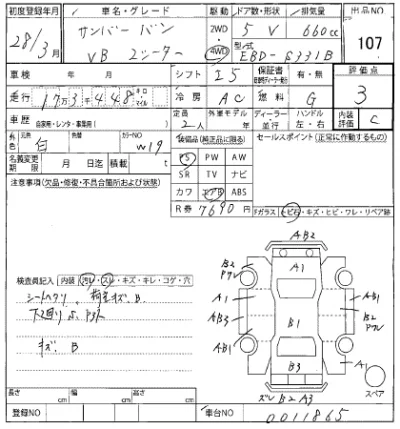 初度登録年月 車名・グレード 駆動 ドア数・形状 排気量 出品NO
28年3月 サンバー バン 2WD・4WD 5 V 660cc 107
VB 2シーター 型式 EBD-S331B
車検 年 月 シフト I5 保証書 有・無 評価点
走行 17万3千448 キロ・マイル 冷房 AC 燃料 G 3
車歴 自家用・レンタ・事業用( ) 定員 2人 外車モデル 年 ディーラー・並行 ハンドル 左・右 内装評価 C
色 元色 白 色替 カラーNO W19 装備品(純正品に限る) セールスポイント(正常に作動するもの)
名義変更期限 月 日迄 積載 t PS PW AW
注意事項(欠品・修復・不具合箇所および状態) SR TV ナビ
カワ エアB ABS
R券 7690円
Fガラス・トビ石・キズ・ヒビ・ワレ・リペア跡
AB2
B2 A1
A1 AB1
AB3 B1 B2
AB1
B3 A1
検査員記入 内装 汚レ・スレ・キズ・キレ・コゲ・穴
シートヘタリ、荷室キズ、B
下廻り S、
キズ B
ズレ B2 A3 スペア
長さ cm 幅 cm 高さ cm
登録NO 車台NO 0011865